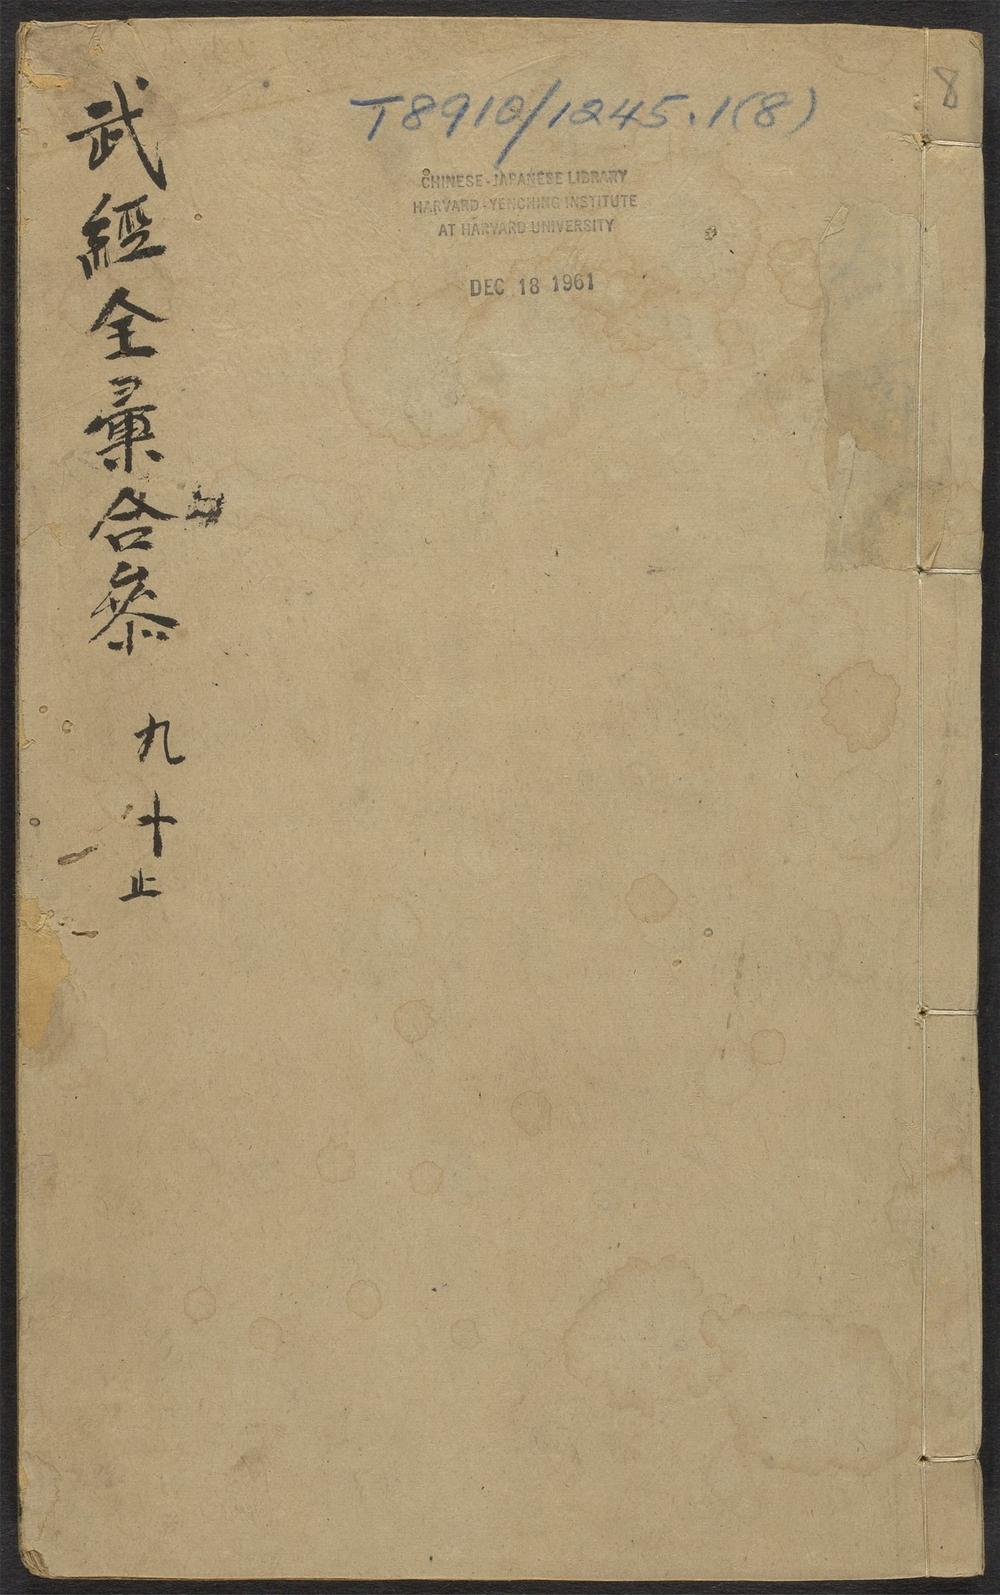 T8910/1245.1(8)
8
CHINESE-JAPANESE LIBRARY
HARVARD-YENCHING INSTITUTE
AT HARVARD UNIVERSITY
DEC 18 1961
武經全彙合叅 九 十 止